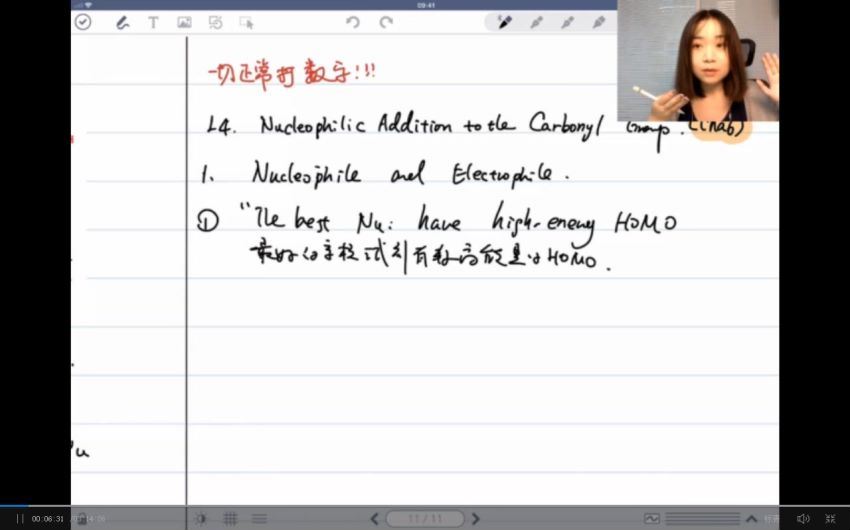 09:41
一切正常打数字!!!
L4. Nucleophilic Addition to the Carbonyl Group.
1. Nucleophile and Electrophile.
① "The best Nu: have high-energy HOMO
最好的亲核试剂有较高能量的HOMO.
u
11/11
00:06:31